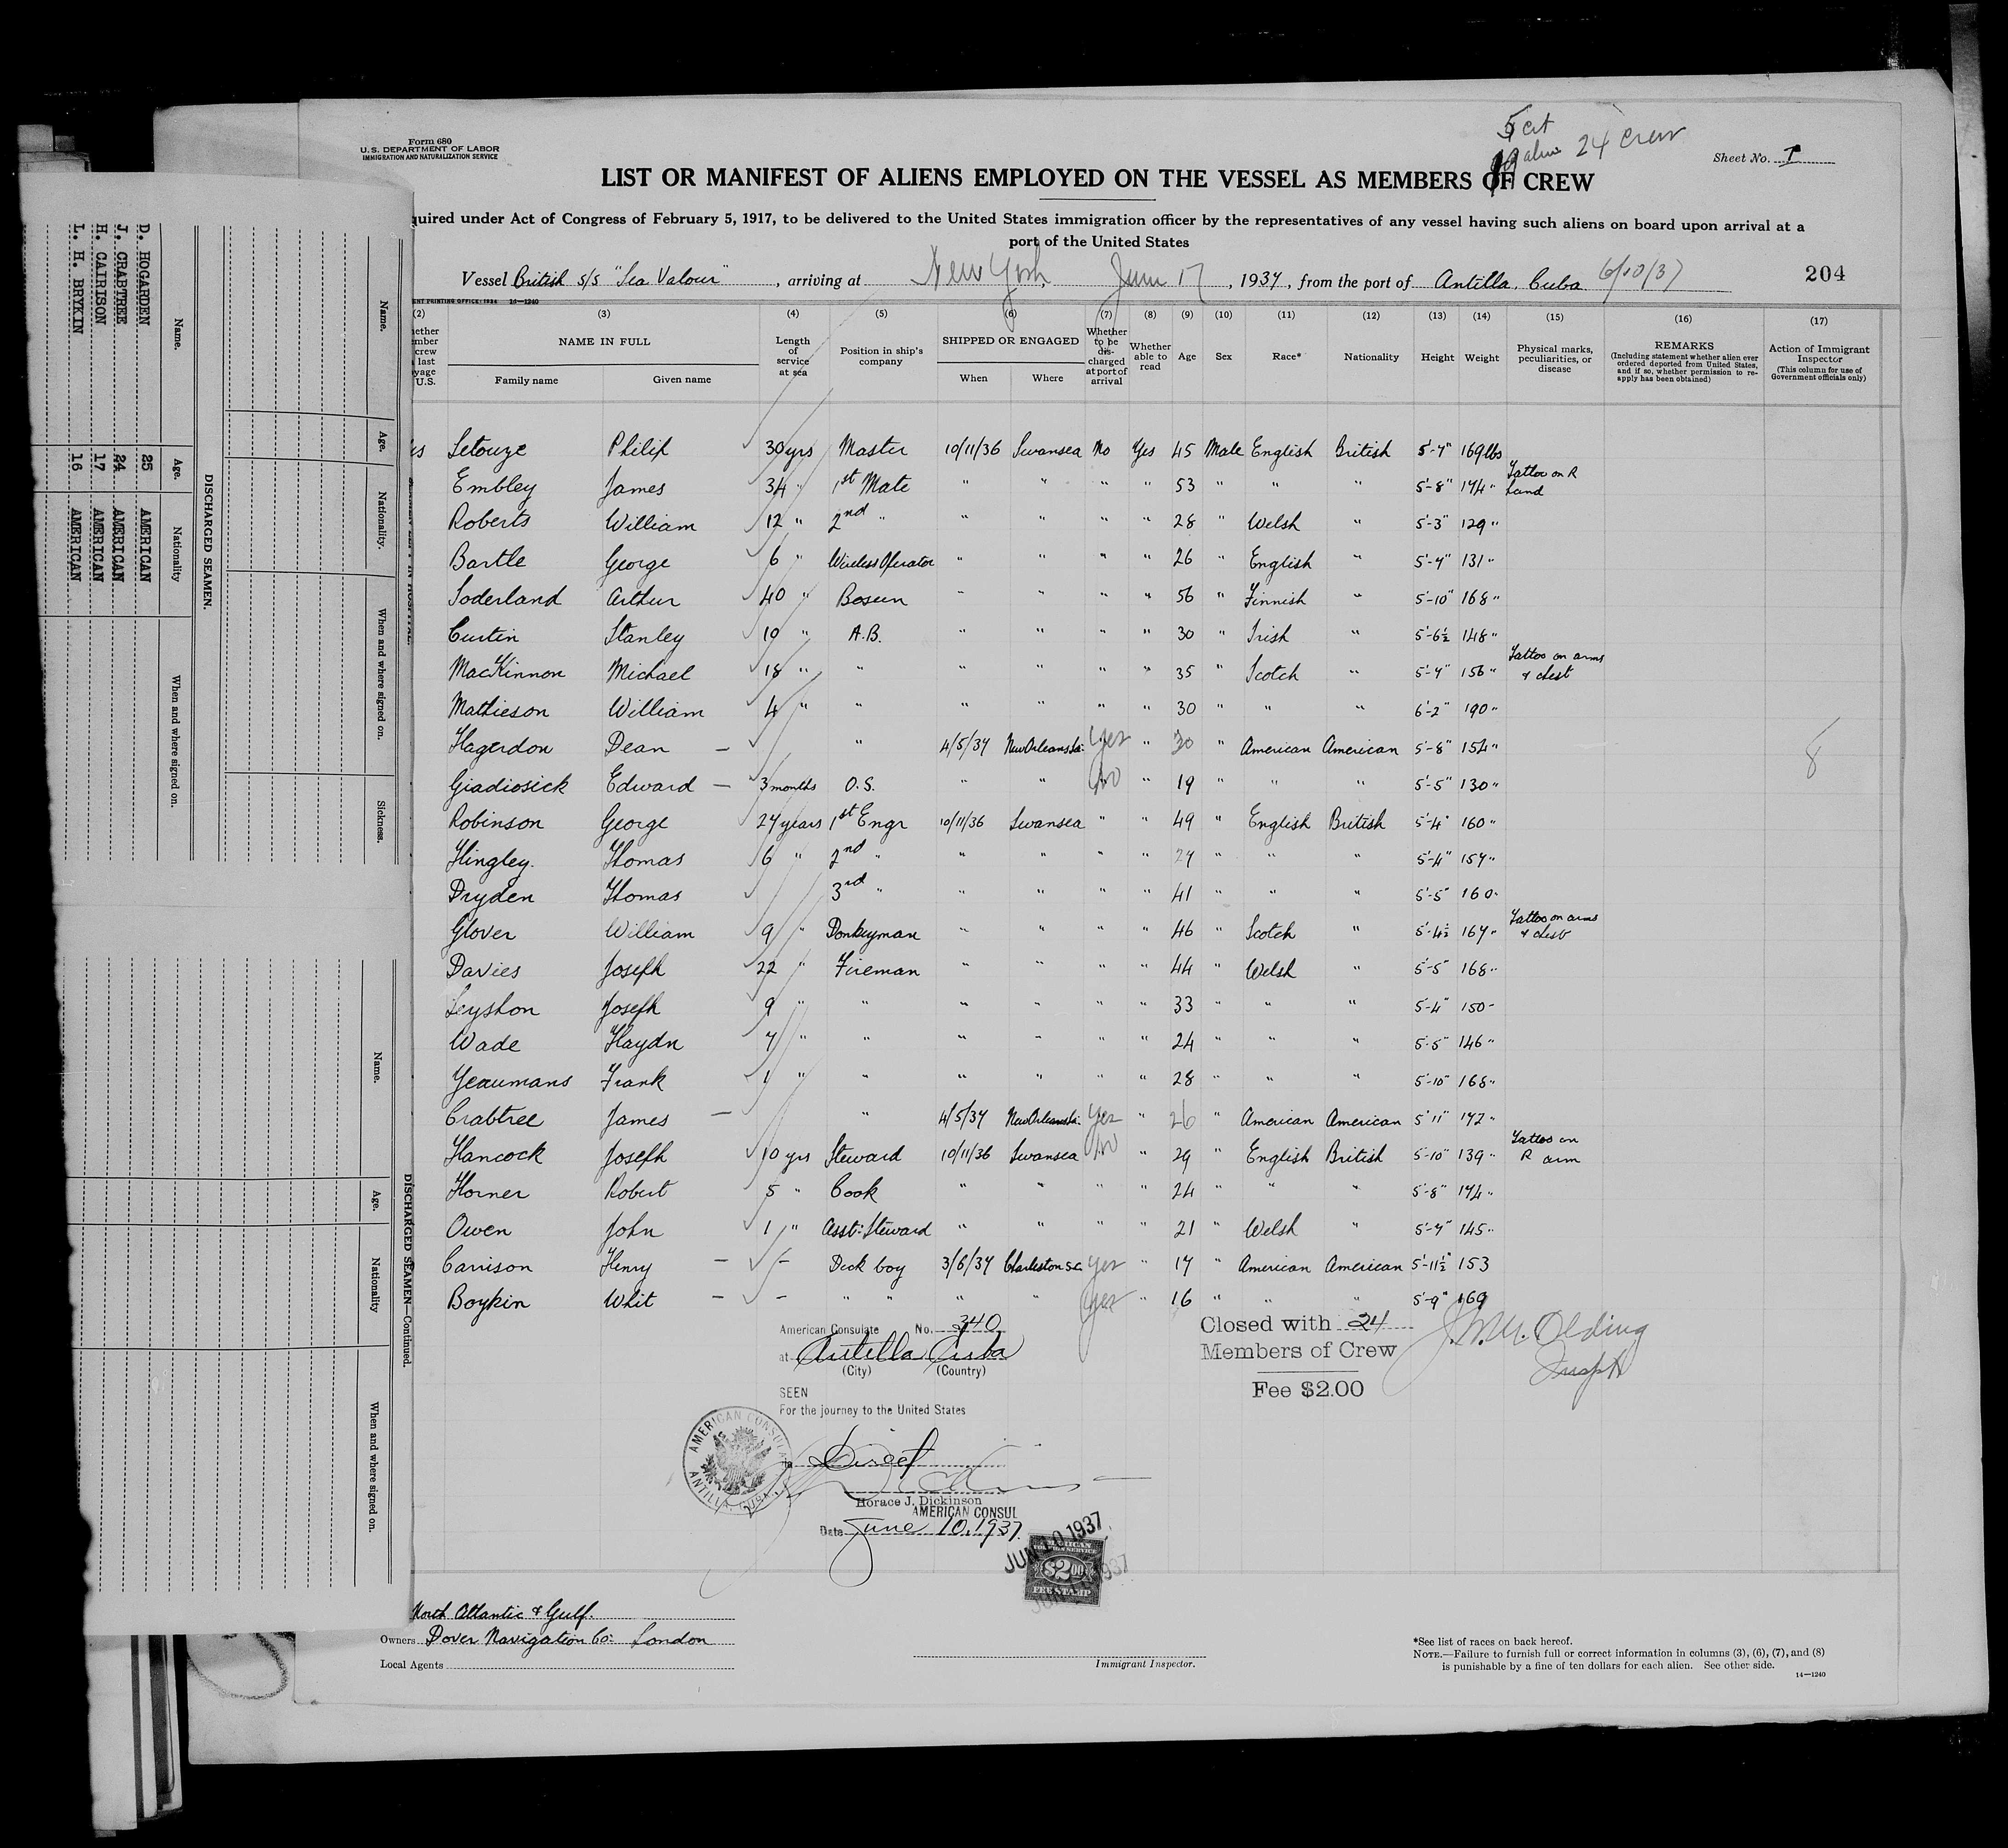 Form 680
U.S. DEPARTMENT OF LABOR
IMMIGRATION AND NATURALIZATION SERVICE
5 cit
19 alien 24 crew
Sheet No. 1
LIST OR MANIFEST OF ALIENS EMPLOYED ON THE VESSEL AS MEMBERS OF CREW
quired under Act of Congress of February 5, 1917, to be delivered to the United States immigration officer by the representatives of any vessel having such aliens on board upon arrival at a
port of the United States
Vessel British s/s "Sea Valour", arriving at New York June 17, 1937, from the port of Antilla, Cuba 6/10/37
204
ENT PRINTING OFFICE: 1934 14—1240
(2) (3) (4) (5) (6) (7) (8) (9) (10) (11) (12) (13) (14) (15) (16) (17)
NAME IN FULL
Family name Given name
Length of service at sea
Position in ship's company
SHIPPED OR ENGAGED
When Where
Whether to be discharged at port of arrival
Whether able to read
Age Sex Race* Nationality Height Weight
Physical marks, peculiarities, or disease
REMARKS
(Including statement whether alien ever ordered deported from United States, and if so, whether permission to reapply has been obtained)
Action of Immigrant Inspector
(This column for use of Government officials only)
Letouze Philip 30 yrs Master 10/11/36 Swansea No Yes 45 Male English British 5'-7" 169 lbs
Embley James 34 " 1st Mate " " " " 53 " " " 5'-8" 174 " Tattoo on R hand
Roberts William 12 " 2nd " " " " " 28 " Welsh " 5'-3" 129 "
Bartle George 6 " Wireless Operator " " " " 26 " English " 5'-7" 131 "
Soderland Arthur 40 " Bosun " " " " 56 " Finnish " 5'-10" 168 "
Curtin Stanley 19 " A.B. " " " " 30 " Irish " 5'-6½ 148 "
MacKinnon Michael 18 " " " " " " 35 " Scotch " 5'-7" 156 " Tattoo on arms & chest
Mathieson William 4 " " " " " " 30 " " " 6'-2" 190 "
Hagerdon Dean — " 4/5/37 New Orleans La. Yes " 30 " American American 5'-8" 154 "
8
Giadiosick Edward — 3 months O.S. " " No " 19 " " " 5'-5" 130 "
Robinson George 27 years 1st Engr 10/11/36 Swansea " " 49 " English British 5'-4" 160 "
Hingley. Thomas 6 " 2nd " " " " " 27 " " " 5'-4" 157 "
Dryden Thomas 3rd " " " " " 41 " " " 5'-5" 160 "
Glover William 9 " Donkeyman " " " " 46 " Scotch " 5'-4½ 167 " Tattoo on arms & chest
Davies Joseph 22 " Fireman " " " " 44 " Welsh " 5'-5" 168 "
Leyshon Joseph 9 " " " " " " 33 " " " 5'-4" 150 "
Wade Haydn 7 " " " " " " 24 " " " 5'-5" 146 "
Yeaumans Frank 1 " " " " " " 28 " " " 5'-10" 168 "
Crabtree James — " 4/5/37 New Orleans La. Yes " 26 " American American 5'11" 172 "
Hancock Joseph 10 yrs Steward 10/11/36 Swansea No " 29 " English British 5'-10" 139 " Tattoo on R arm
Horner Robert 5 " Cook " " " " 24 " " " 5'-8" 174 "
Owen John 1 " Asst: Steward " " " " 21 " Welsh " 5'-7" 145 "
Carrison Henry — — Deck boy 3/6/37 Charleston S.C. Yes " 17 " American American 5'-11½" 153
Boykin Whit — — " " " " Yes " 16 " " " 5'-9" 169
American Consulate No. 340
at Antilla, Cuba
(City) (Country)
SEEN
For the journey to the United States
Direct
Horace J. Dickinson
AMERICAN CONSUL
Date June 10, 1937.
AMERICAN CONSULAR
ANTILLA, CUBA
JUN 10 1937
AMERICAN
$2.00
FEE STAMP
Closed with 24
Members of Crew
Fee $2.00
J.M. Olding
North Atlantic & Gulf.
Owners Dover Navigation Co: London
Local Agents
Immigrant Inspector.
*See list of races on back hereof.
NOTE.—Failure to furnish full or correct information in columns (3), (6), (7), and (8)
is punishable by a fine of ten dollars for each alien. See other side.
14—1240
Name. Age. Nationality. When and where signed on. Sickness.
DISCHARGED SEAMEN.
Name. Age. Nationality When and where signed on.
D. HOGARDEN 25 AMERICAN
J. CRABTREE 24 AMERICAN
H. CAIRISON 17 AMERICAN
L. H. BRYKIN 16 AMERICAN
DISCHARGED SEAMEN—Continued.
Name. Age. Nationality When and where signed on.